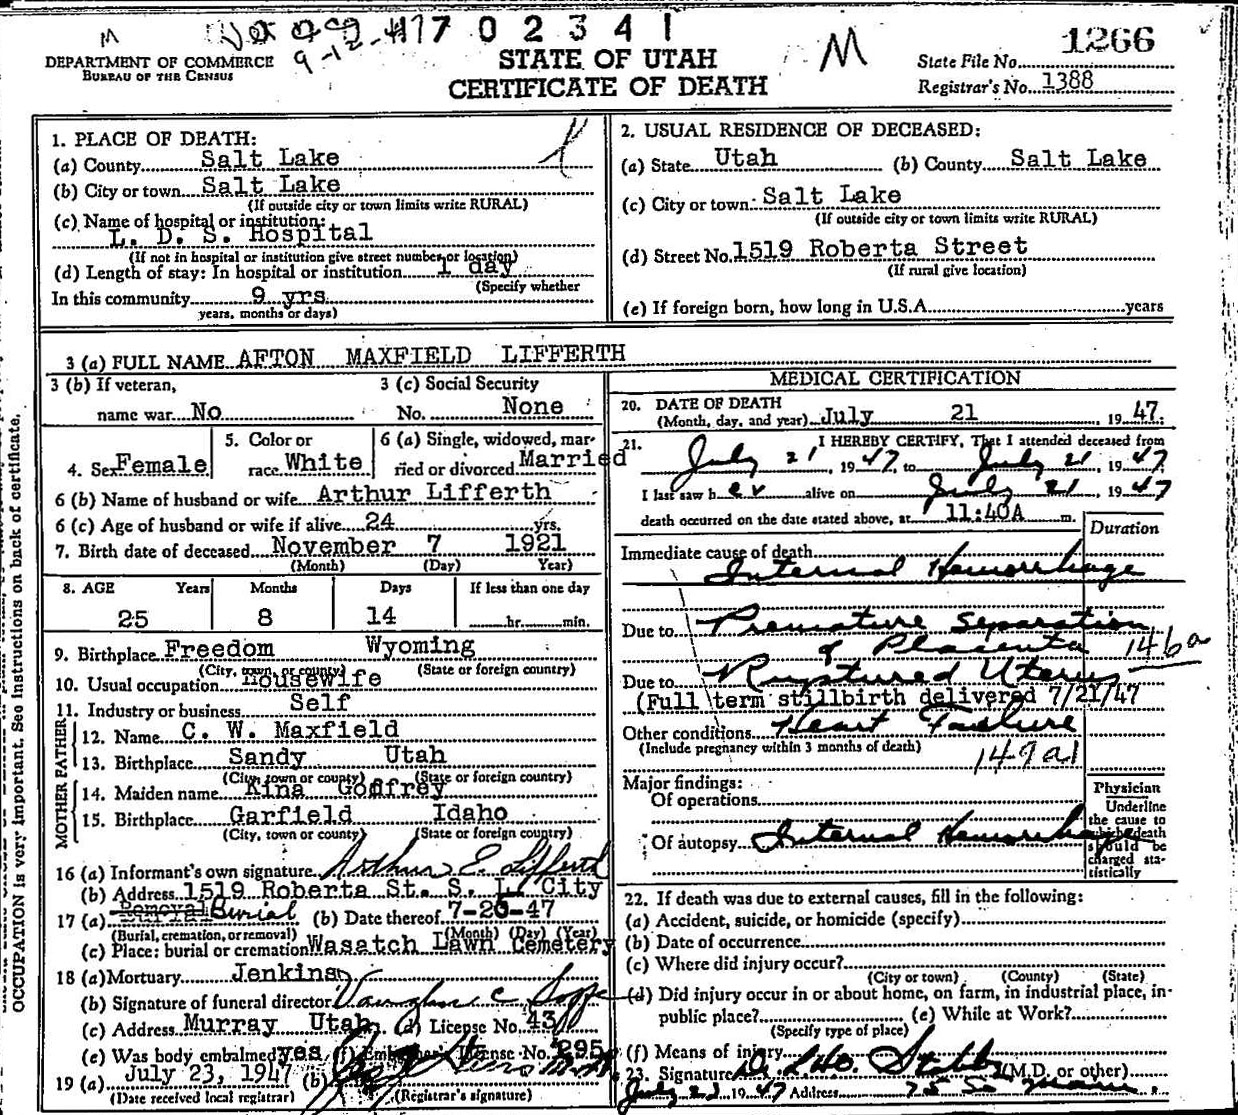 M 702341 M 1266
DEPARTMENT OF COMMERCE
BUREAU OF THE CENSUS
9-12-47
STATE OF UTAH
CERTIFICATE OF DEATH
State File No.
Registrar's No. 1388
1. PLACE OF DEATH:
(a) County Salt Lake
(b) City or town Salt Lake
(If outside city or town limits write RURAL)
(c) Name of hospital or institution:
L. D. S. Hospital
(If not in hospital or institution give street number or location)
(d) Length of stay: In hospital or institution 1 day
(Specify whether
In this community 9 yrs
years, months or days)
2. USUAL RESIDENCE OF DECEASED:
(a) State Utah (b) County Salt Lake
(c) City or town: Salt Lake
(If outside city or town limits write RURAL)
(d) Street No. 1519 Roberta Street
(If rural give location)
(e) If foreign born, how long in U.S.A. years
3 (a) FULL NAME AFTON MAXFIELD LIFFERTH
3 (b) If veteran, 3 (c) Social Security
name war No No. None
4. Sex Female 5. Color or race White 6 (a) Single, widowed, married or divorced Married
6 (b) Name of husband or wife Arthur Lifferth
6 (c) Age of husband or wife if alive 24 yrs.
7. Birth date of deceased November 7 1921
(Month) (Day) Year)
8. AGE Years Months Days If less than one day
25 8 14 hr. min.
9. Birthplace Freedom Wyoming
(City, town, or county) (State or foreign country)
10. Usual occupation Housewife
11. Industry or business Self
FATHER
12. Name C. W. Maxfield
13. Birthplace Sandy Utah
(City, town or county) (State or foreign country)
MOTHER
14. Maiden name Kina Godfrey
15. Birthplace Garfield Idaho
(City, town or county) (State or foreign country)
16 (a) Informant's own signature Arthur E. Lifferth
(b) Address 1519 Roberta St. S. L. City
17 (a) Removal Burial (b) Date thereof 7-26-47
(Burial, cremation, or removal) (Month) (Day) (Year)
(c) Place: burial or cremation Wasatch Lawn Cemetery
18 (a) Mortuary Jenkins
(b) Signature of funeral director Vaughn C
(c) Address Murray Utah (d) License No. 43
(e) Was body embalmed? yes (f) Embalmer's License No. 295
19 (a) July 23, 1947 (b)
(Date received local registrar) (Registrar's signature)
OCCUPATION is very important. See instructions on back of certificate.
MEDICAL CERTIFICATION
20. DATE OF DEATH
(Month, day, and year) July 21 1947.
21. I HEREBY CERTIFY, That I attended deceased from
July 21, 1947 to July 21, 1947
I last saw her alive on July 21, 1947
death occurred on the date stated above, at 11:40A m.
Duration
Immediate cause of death
Internal Hemorrhage
Due to Premature Separation
of Placenta 146a
Due to Ruptured Uterus
(Full term stillbirth delivered 7/21/47
Other conditions Heart Failure
(Include pregnancy within 3 months of death)
149a1
Major findings:
Of operations
Of autopsy Internal Hemorrhage
Physician
Underline
the cause to
which death
should be
charged sta-
tistically
22. If death was due to external causes, fill in the following:
(a) Accident, suicide, or homicide (specify)
(b) Date of occurrence
(c) Where did injury occur?
(City or town) (County) (State)
(d) Did injury occur in or about home, on farm, in industrial place, in
public place? (e) While at Work?
(Specify type of place)
(f) Means of injury
23. Signature (M.D. or other)
July 1947 Address 75 So Main